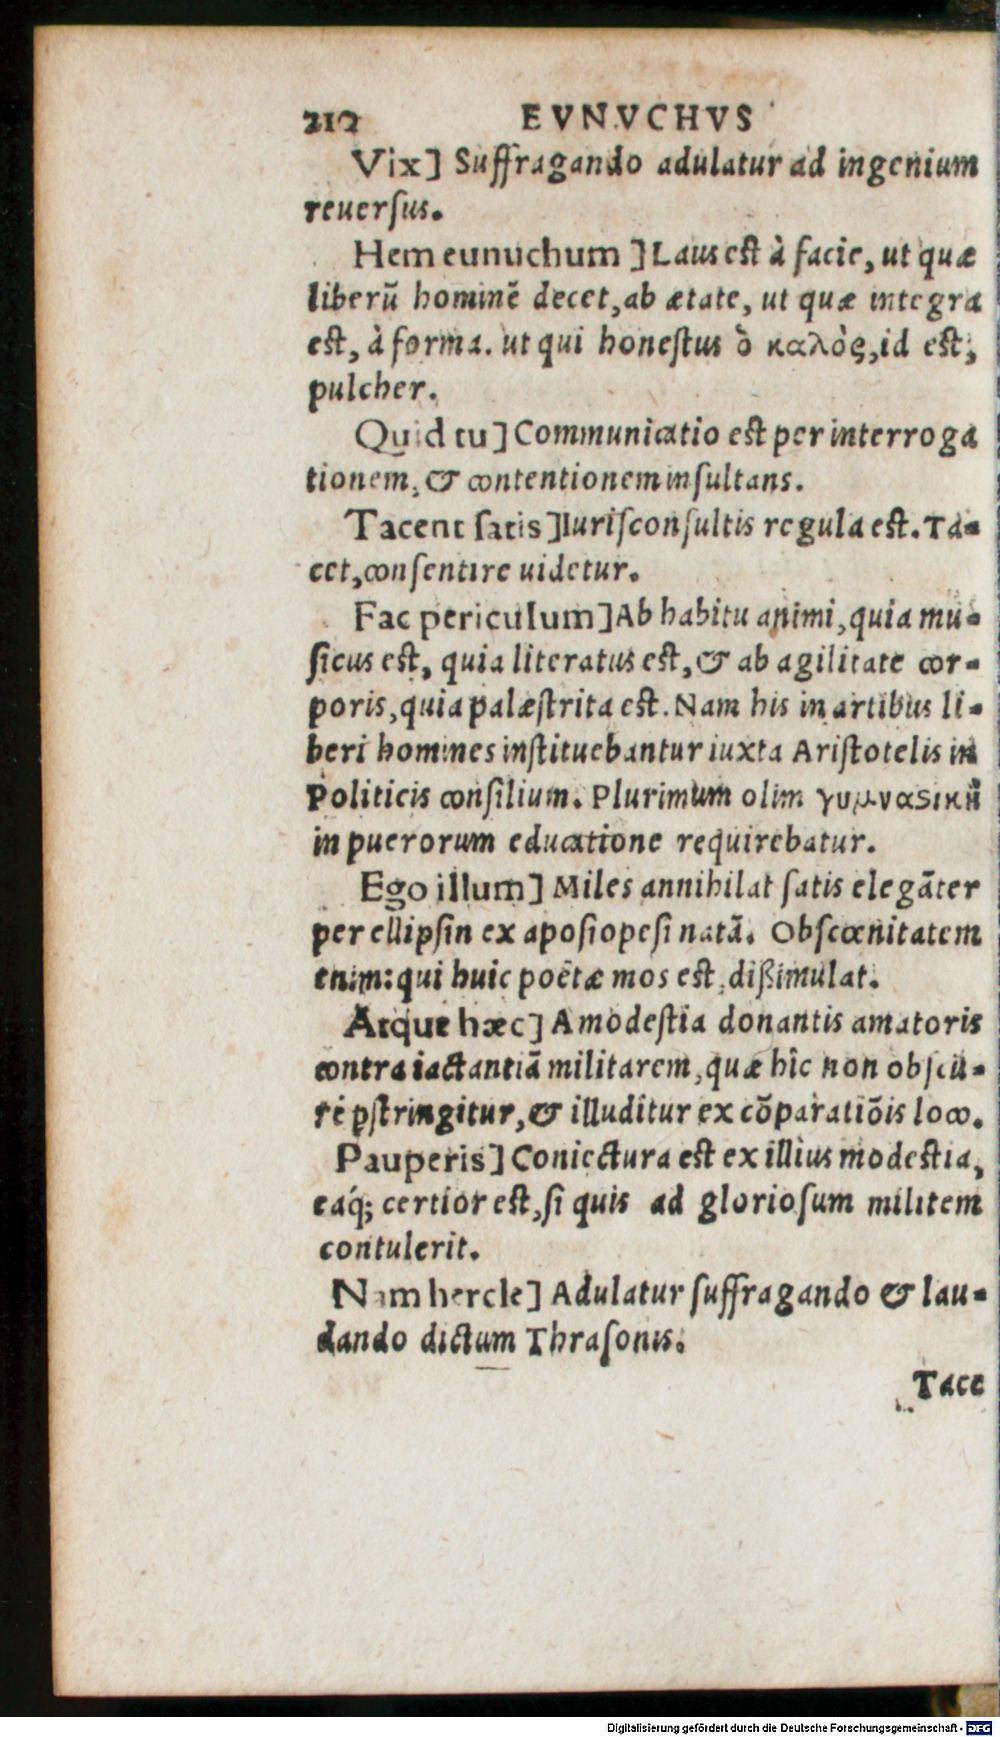 212 EVNVCHVS
Vix] Suffragando adulatur ad ingenium
reuersus.
Hem eunuchum] Laus est à facie, ut quæ
liberū hominē decet, ab ætate, ut quæ integra
est, à forma. ut qui honestus ὁ καλὸς, id est,
pulcher.
Quid tu] Communicatio est per interroga
tionem, & contentionem insultans.
Tacent satis] Iurisconsultis regula est. Ta-
cet, consentire uidetur.
Fac periculum] Ab habitu animi, quia mu-
sicus est, quia literatus est, & ab agilitate cor-
poris, quia palæstrita est. Nam his in artibus li-
beri homines instituebantur iuxta Aristotelis in
Politicis consilium. Plurimum olim γυμναϛικὴ
in puerorum educatione requirebatur.
Ego illum] Miles annihilat satis elegāter
per ellipsin ex aposiopesi natā. Obscœnitatem
enim: qui huic poëtæ mos est, dißimulat.
Atque hæc] A modestia donantis amatoris
contra iactantiā militarem, quæ hîc non obscu-
rè ꝑstringitur, & illuditur ex cōparatiōis loco.
Pauperis] Coniectura est ex illius modestia,
eaq́; certior est, si quis ad gloriosum militem
contulerit.
Nam hercle] Adulatur suffragando & lau-
dando dictum Thrasonis.
Tace
Digitalisierung gefördert durch die Deutsche Forschungsgemeinschaft - DFG